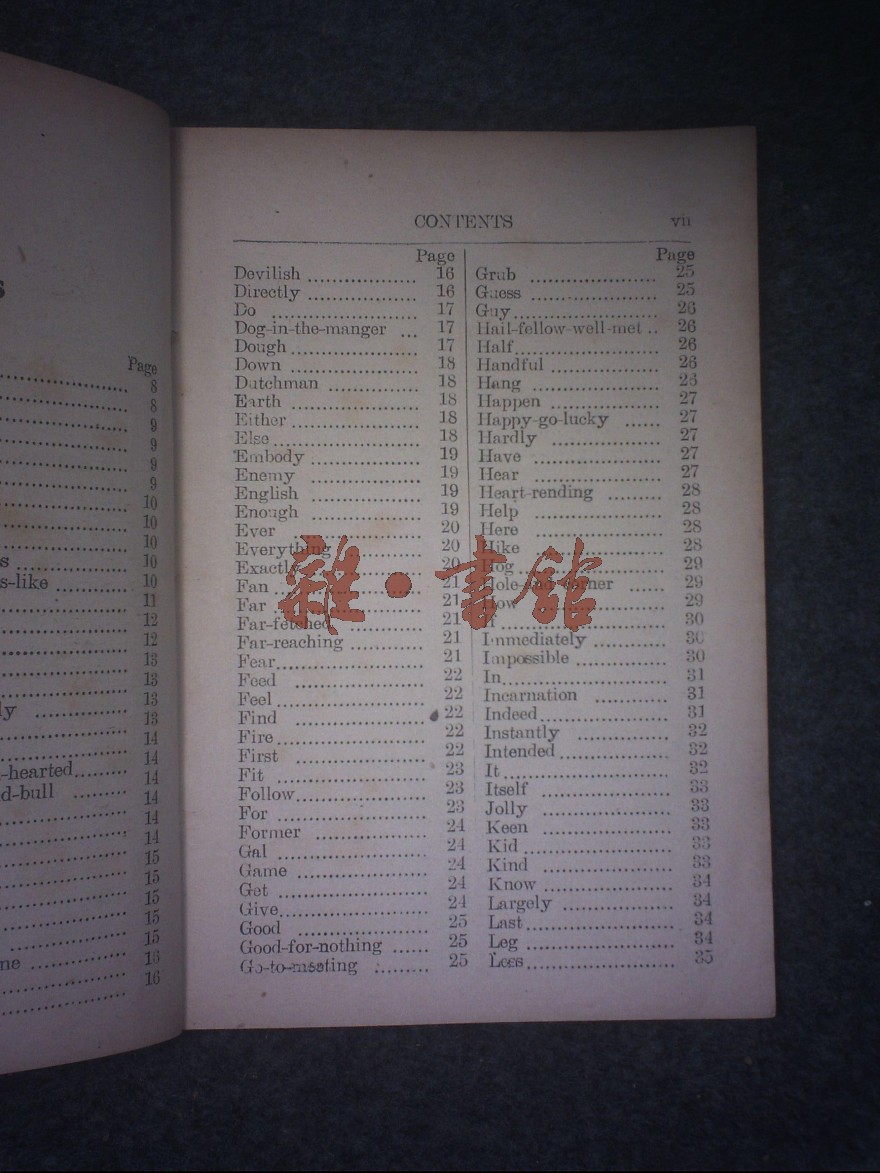 S
Page
8
8
9
9
9
9
10
10
10
s 10
s-like 10
11
12
12
13
13
ly 13
13
14
14
-hearted 14
d-bull 14
14
14
15
15
15
15
15
ne 13
16
CONTENTS vii
Page
Devilish 16
Directly 16
Do 17
Dog-in-the-manger 17
Dough 17
Down 18
Dutchman 18
Earth 18
Either 18
Else 18
Embody 19
Enemy 19
English 19
Enough 19
Ever 20
Everything 20
Exactly 20
Fan 21
Far 21
Far-fetched 21
Far-reaching 21
Fear 21
Feed 22
Feel 22
Find 22
Fire 22
First 22
Fit 23
Follow 23
For 23
Former 24
Gal 24
Game 24
Get 24
Give 24
Good 25
Good-for-nothing 25
Go-to-meeting 25
Page
Grub 25
Guess 25
Guy 26
Hail-fellow-well-met 26
Half 26
Handful 26
Hang 26
Happen 27
Happy-go-lucky 27
Hardly 27
Have 27
Hear 27
Heart-rending 28
Help 28
Here 28
Hike 28
Hog 29
Hole-and-corner 29
How 29
If 30
Immediately 30
Impossible 30
In 31
Incarnation 31
Indeed 31
Instantly 32
Intended 32
It 32
Itself 33
Jolly 33
Keen 33
Kid 33
Kind 33
Know 34
Largely 34
Last 34
Leg 34
Less 35
雜·書館